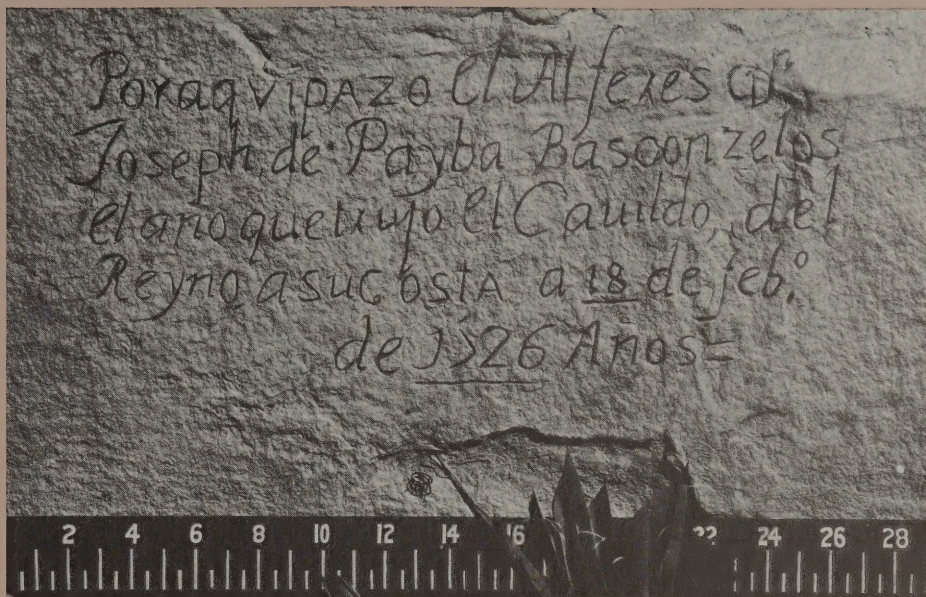 Por aqvi pAZo el Alferes Dn
Joseph de Payba Basconzelos
el año que trujo el Cauildo del
Reyno a su costA a 18 de febo
de 1726 Años=
2 4 6 8 10 12 14 16 22 24 26 28